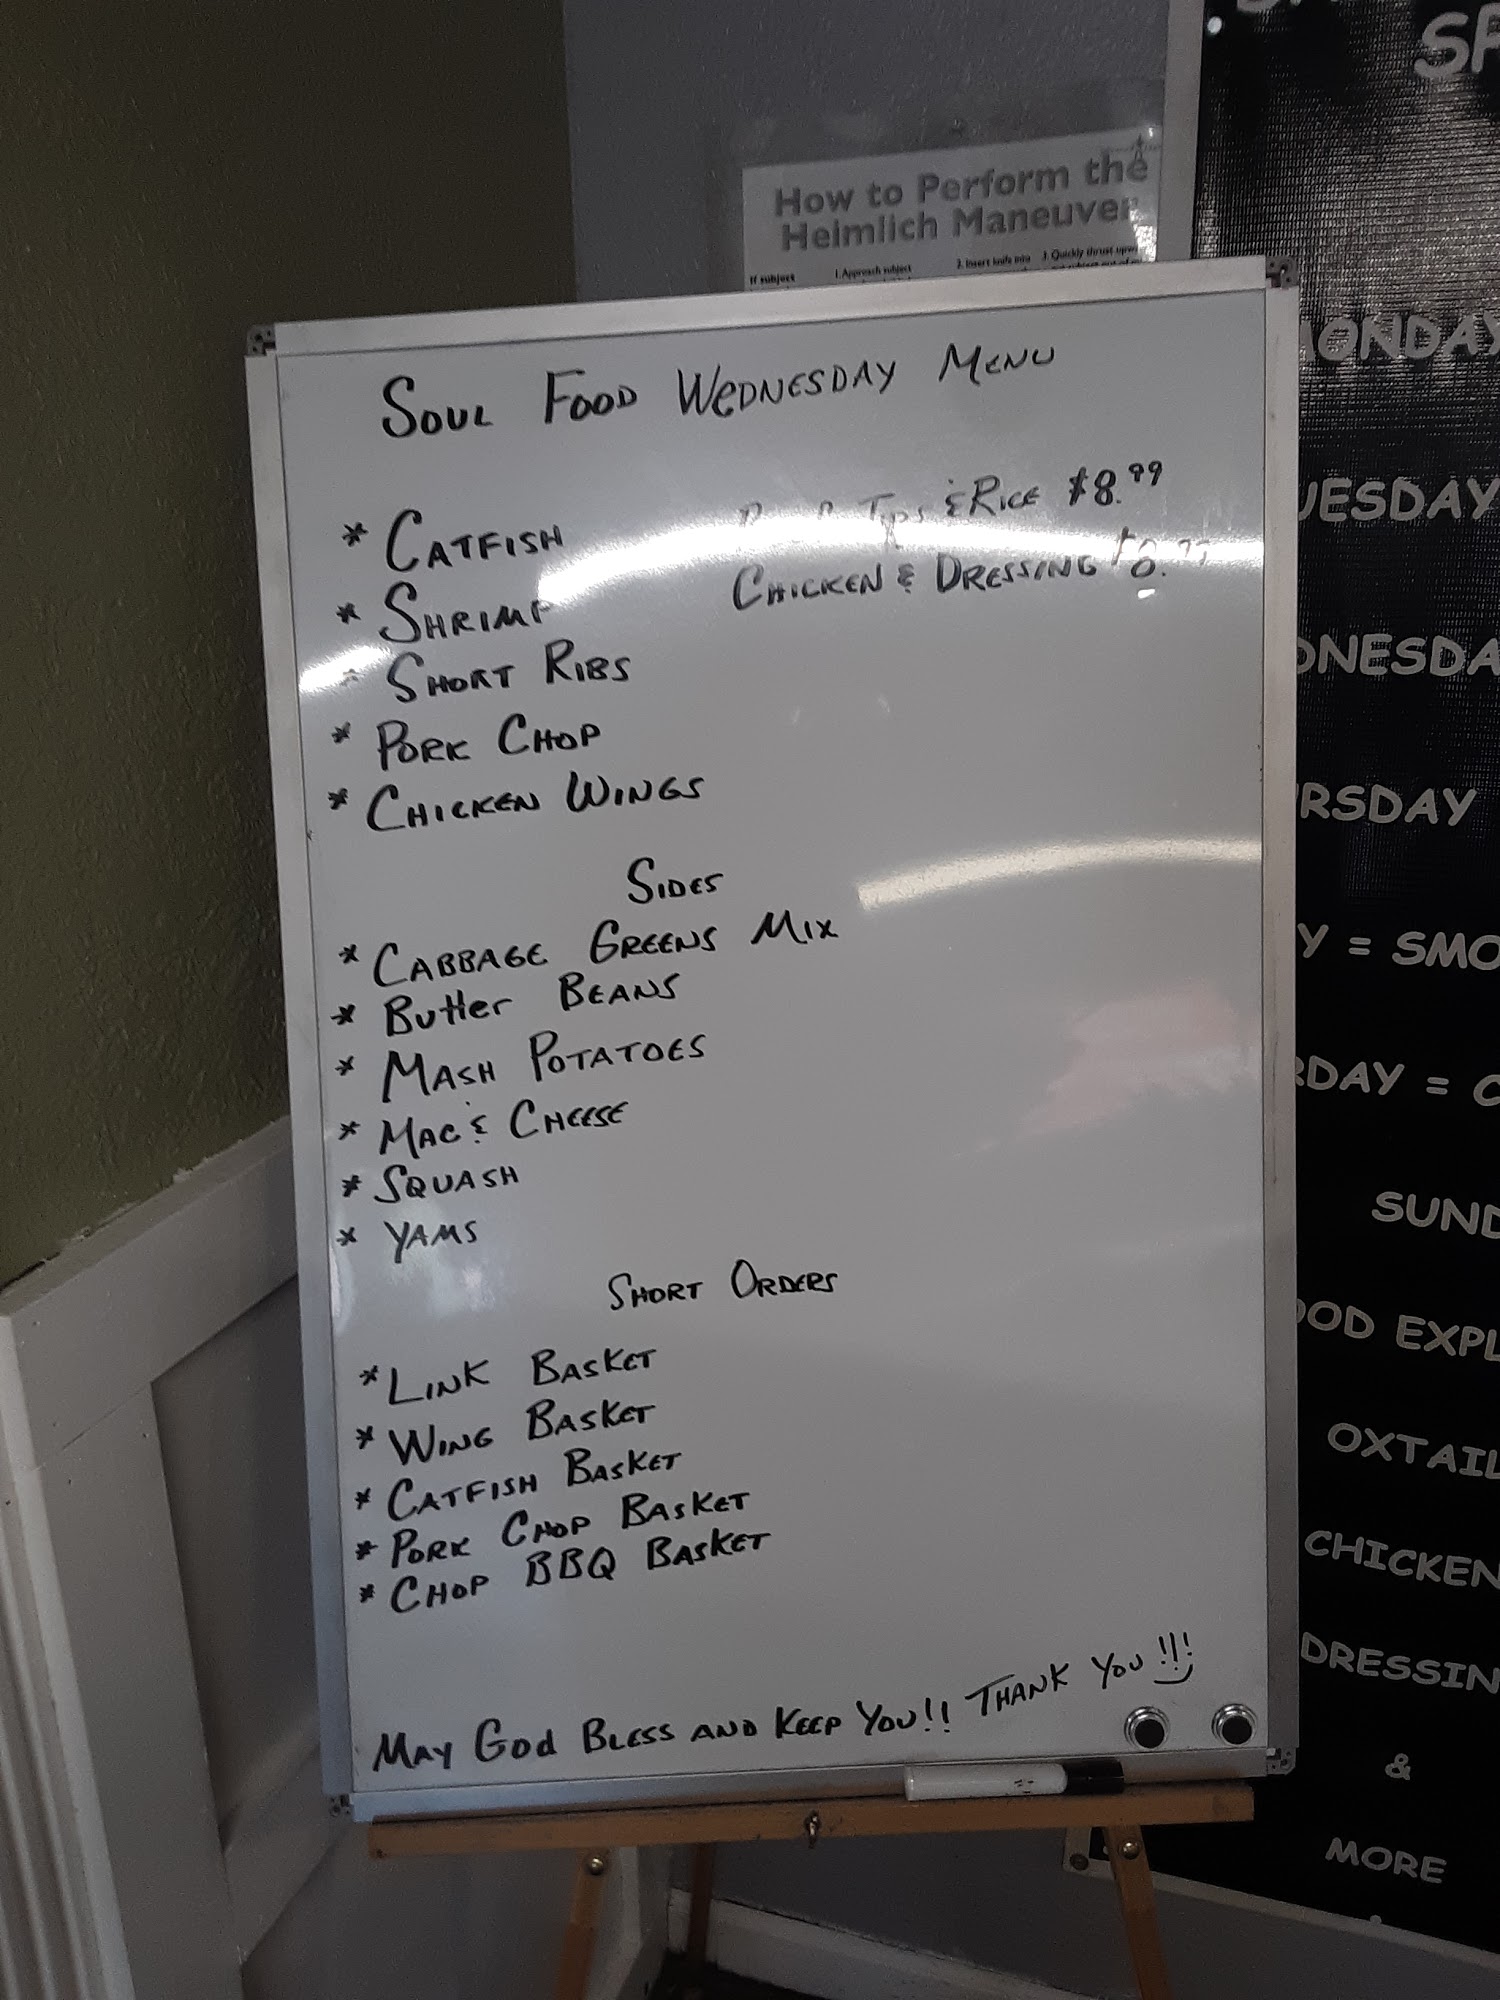 How to Perform the
Heimlich Maneuver
If subject
1. Approach subject
2. Insert knife into
3. Quickly thrust
SOUL FOOD WEDNESDAY MENU
* CATFISH
* SHRIMP
* SHORT RIBS
* PORK CHOP
* CHICKEN WINGS
TIPS & RICE $8.99
CHICKEN & DRESSING
SIDES
* CABBAGE GREENS MIX
* Butter BEANS
* MASH POTATOES
* MAC & CHEESE
* SQUASH
* YAMS
SHORT ORDERS
* LINK BASKET
* WING BASKET
* CATFISH BASKET
* PORK CHOP BASKET
* CHOP BBQ BASKET
MAY GOD BLESS AND KEEP YOU!! THANK YOU!!!
SP
MONDAY
UESDAY
DNESDA
RSDAY
Y = SMO
RDAY = C
SUND
OOD EXPL
OXTAIL
CHICKEN
DRESSIN
&
MORE